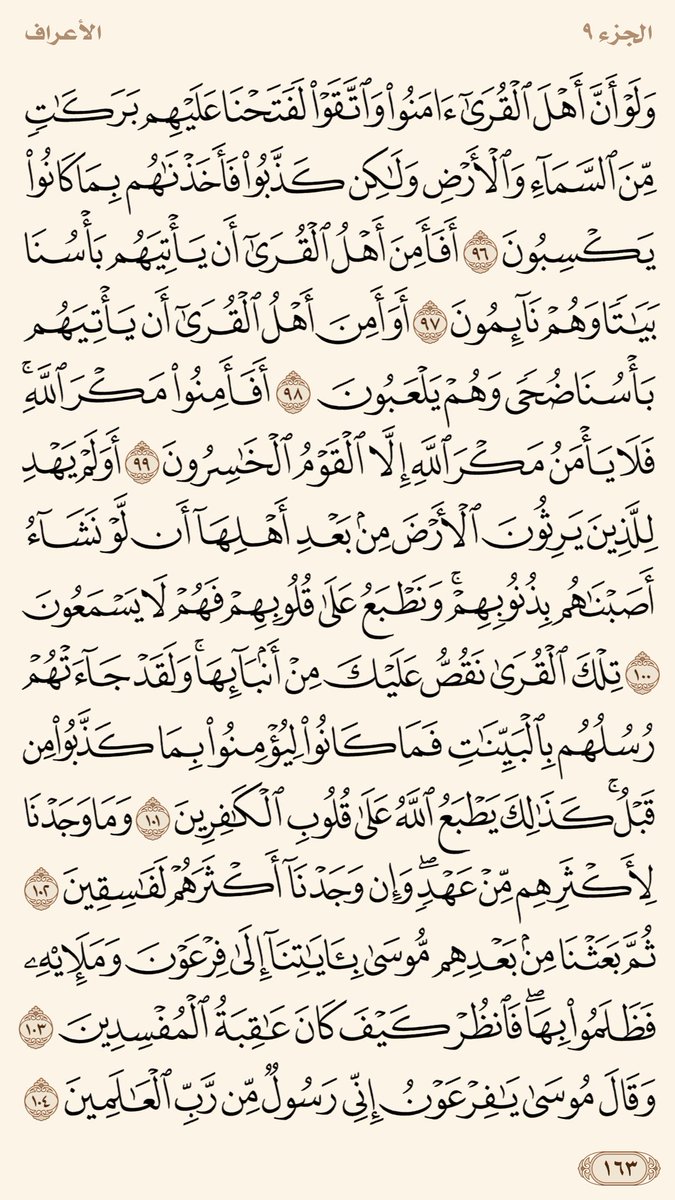 الجزء ٩ الأعراف
وَلَوْ أَنَّ أَهْلَ ٱلْقُرَىٰٓ ءَامَنُوا۟ وَٱتَّقَوْا۟ لَفَتَحْنَا عَلَيْهِم بَرَكَٰتٍ
مِّنَ ٱلسَّمَآءِ وَٱلْأَرْضِ وَلَٰكِن كَذَّبُوا۟ فَأَخَذْنَٰهُم بِمَا كَانُوا۟
يَكْسِبُونَ ٩٦ أَفَأَمِنَ أَهْلُ ٱلْقُرَىٰٓ أَن يَأْتِيَهُم بَأْسُنَا
بَيَٰتًا وَهُمْ نَآئِمُونَ ٩٧ أَوَأَمِنَ أَهْلُ ٱلْقُرَىٰٓ أَن يَأْتِيَهُم
بَأْسُنَا ضُحًى وَهُمْ يَلْعَبُونَ ٩٨ أَفَأَمِنُوا۟ مَكْرَ ٱللَّهِۚ
فَلَا يَأْمَنُ مَكْرَ ٱللَّهِ إِلَّا ٱلْقَوْمُ ٱلْخَٰسِرُونَ ٩٩ أَوَلَمْ يَهْدِ
لِلَّذِينَ يَرِثُونَ ٱلْأَرْضَ مِنۢ بَعْدِ أَهْلِهَآ أَن لَّوْ نَشَآءُ
أَصَبْنَٰهُم بِذُنُوبِهِمْۚ وَنَطْبَعُ عَلَىٰ قُلُوبِهِمْ فَهُمْ لَا يَسْمَعُونَ
١٠٠ تِلْكَ ٱلْقُرَىٰ نَقُصُّ عَلَيْكَ مِنْ أَنۢبَآئِهَاۚ وَلَقَدْ جَآءَتْهُمْ
رُسُلُهُم بِٱلْبَيِّنَٰتِ فَمَا كَانُوا۟ لِيُؤْمِنُوا۟ بِمَا كَذَّبُوا۟ مِن
قَبْلُۚ كَذَٰلِكَ يَطْبَعُ ٱللَّهُ عَلَىٰ قُلُوبِ ٱلْكَٰفِرِينَ ١٠١ وَمَا وَجَدْنَا
لِأَكْثَرِهِم مِّنْ عَهْدٍۖ وَإِن وَجَدْنَآ أَكْثَرَهُمْ لَفَٰسِقِينَ ١٠٢
ثُمَّ بَعَثْنَا مِنۢ بَعْدِهِم مُّوسَىٰ بِـَٔايَٰتِنَآ إِلَىٰ فِرْعَوْنَ وَمَلَإِيْهِۦ
فَظَلَمُوا۟ بِهَاۖ فَٱنظُرْ كَيْفَ كَانَ عَٰقِبَةُ ٱلْمُفْسِدِينَ ١٠٣
وَقَالَ مُوسَىٰ يَٰفِرْعَوْنُ إِنِّى رَسُولٌ مِّن رَّبِّ ٱلْعَٰلَمِينَ ١٠٤
١٦٣